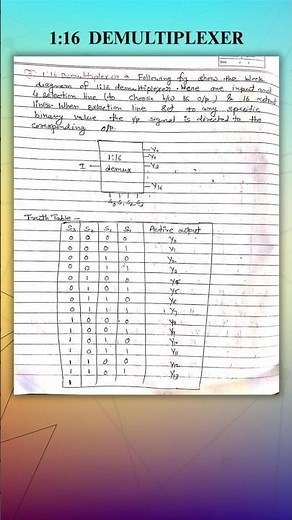 1:16 DEMULTIPLEXER
1:16 Demultiplexer → Following fig shows the block
diagram of 1:16 demultiplexer. Here one input and
4 selection line (to choose b/w 16 o/p) & 16 output
lines. When selection line set to any specific
binary value the i/p signal is directed to the
corresponding o/p.
Y0
Y1
Y2
I
1:16
demux
Y16
Truth Table -
S3 S2 S1 S0 Active output
0 0 0 0 Y0
0 0 0 1 Y1
0 0 1 0 Y2
0 0 1 1 Y3
0 1 0 0
0 1 0 1 Y5
0 1 1 0 Y6
0 1 1 1 Y7
1 0 0 0
1 0 0 1
1 0 1 0
1 0 1 1 Y11
1 1 0 0 Y12
1 1 0 1 Y13
1 1
1